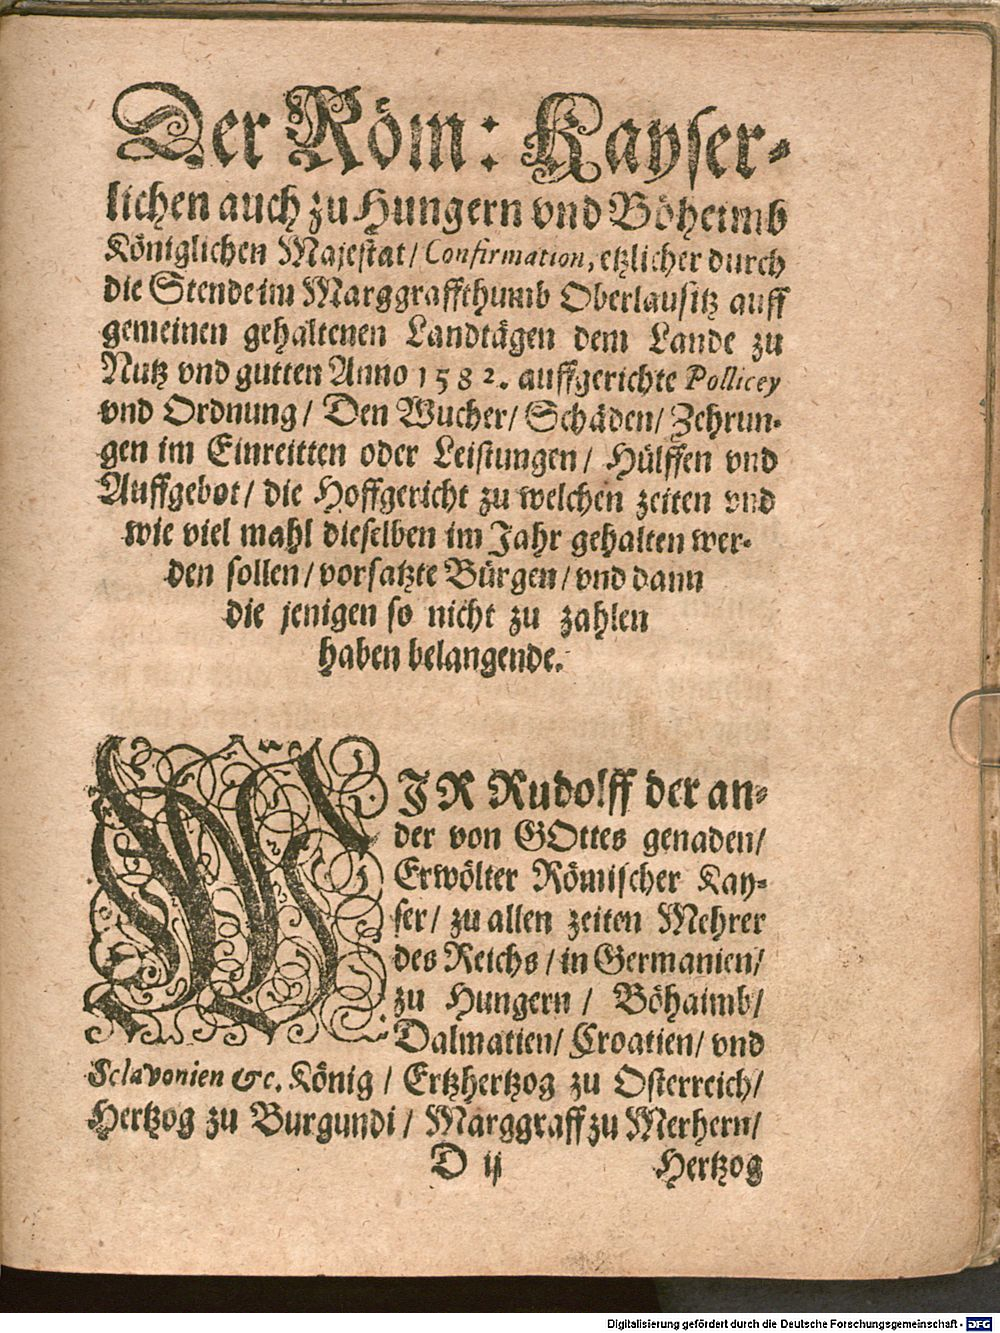 Der Röm: Kayser-
lichen auch zu Hungern vnd Böheimb
Königlichen Majestat/ Confirmation, etzlicher durch
die Stende im Marggraffthumb Oberlausitz auff
gemeinen gehaltenen Landtägen dem Lande zu
Nutz vnd gutten Anno 1582. auffgerichte Pollicey
vnd Ordnung/ Den Wucher/ Schäden/ Zehrun-
gen im Einreitten oder Leistungen/ Hülffen vnd
Auffgebot/ die Hoffgericht zu welchen zeiten vnd
wie viel mahl dieselben im Jahr gehalten wer-
den sollen/ vorsatzte Bürgen/ vnd dann
die jenigen so nicht zu zahlen
haben belangende.
WJR Rudolff der an-
der von GOttes genaden/
Erwölter Römischer Kay-
ser/ zu allen zeiten Mehrer
des Reichs/ in Germanien/
zu Hungern/ Böhaimb/
Dalmatien/ Croatien/ vnd
Sclavonien &c. König/ Ertzhertzog zu Osterreich/
Hertzog zu Burgundi/ Marggraff zu Merhern/
D ij Hertzog
Digitalisierung gefördert durch die Deutsche Forschungsgemeinschaft - DFG